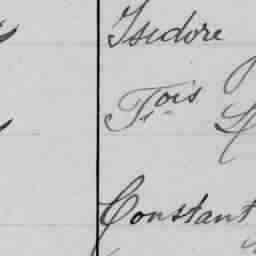 Isidore
Fois
Constant